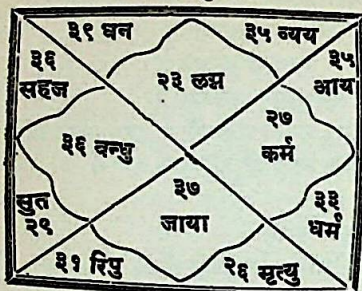 ३९ धन
३५ व्यय
३६
सहज
३५
आय
२३ लग्न
३६ बन्धु
२७
कर्म
सुत
२९
३७
जाया
३३
धर्म
३१ रिपु
२६ मृत्यु